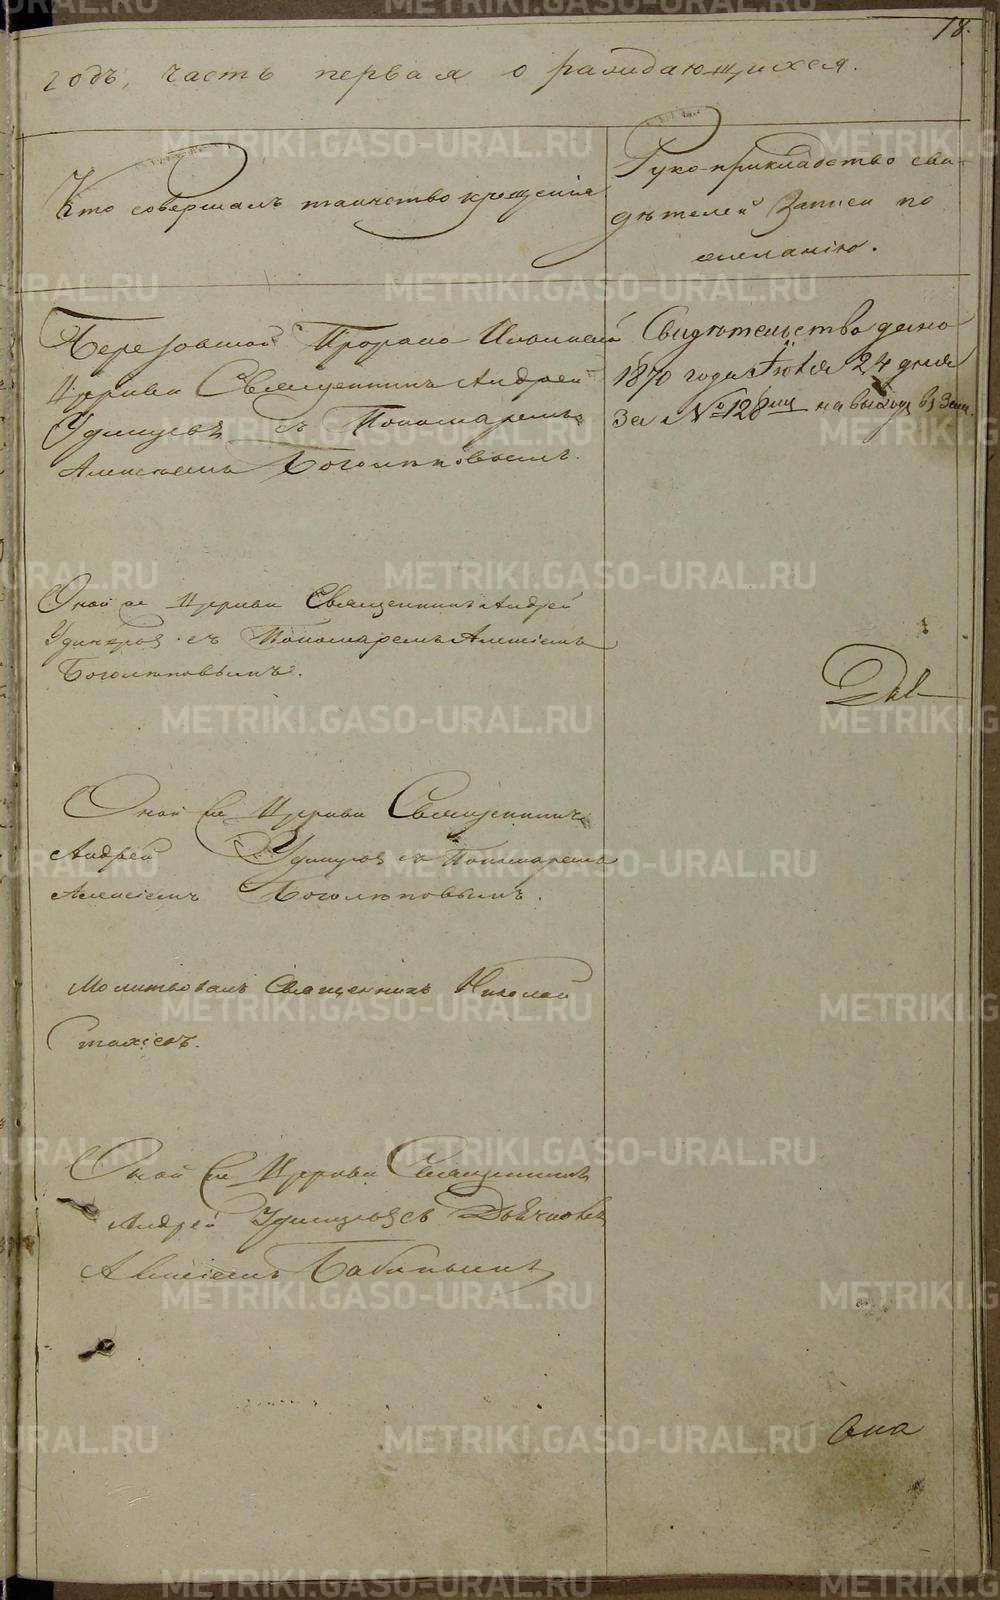 18.
годъ, часть первая о раждающихся.
Кто совершалъ таинство крещенія
Рукоприкладство сви-
дѣтелей записи по
желанію.
Березовской Пророко Ильинской
Церкви Священникъ Андрей
Удинцевъ съ Пономаремъ
Алексѣемъ Боголюповымъ.
Свидѣтельство дано
1870 года Іюля 24 дня
За № 128 на выходъ въ Зам.
Оной же Церкви Священникъ Андрей
Удинцов съ Пономаремъ Алексіемъ
Боголюповымъ.
Оной же Церкви Священникъ
Андрей Удинцов съ Пономаремъ
Алексіемъ Боголюповымъ.
Молитвовалъ Священникъ Николай
Стахіевъ.
Оной же Церкви Священникъ
Андрей Удинцов съ Дьячковъ
Алексіемъ Бабинымъ
METRIKI.GASO-URAL.RU